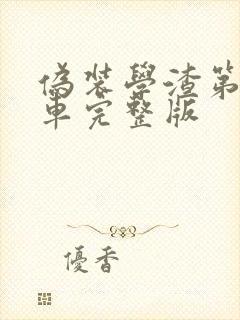 偽裝學渣第
車完整版
優香